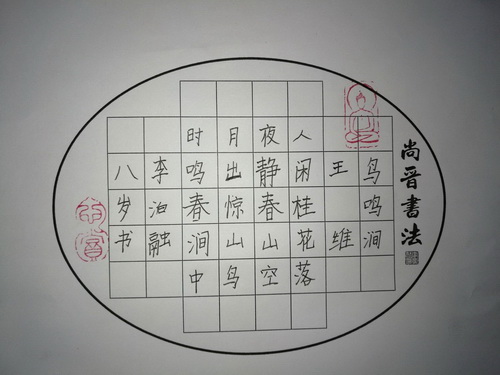 尚晋書法
鸟鸣涧
王维
人闲桂花落
夜静春山空
月出惊山鸟
时鸣春涧中
李泊融
八岁书